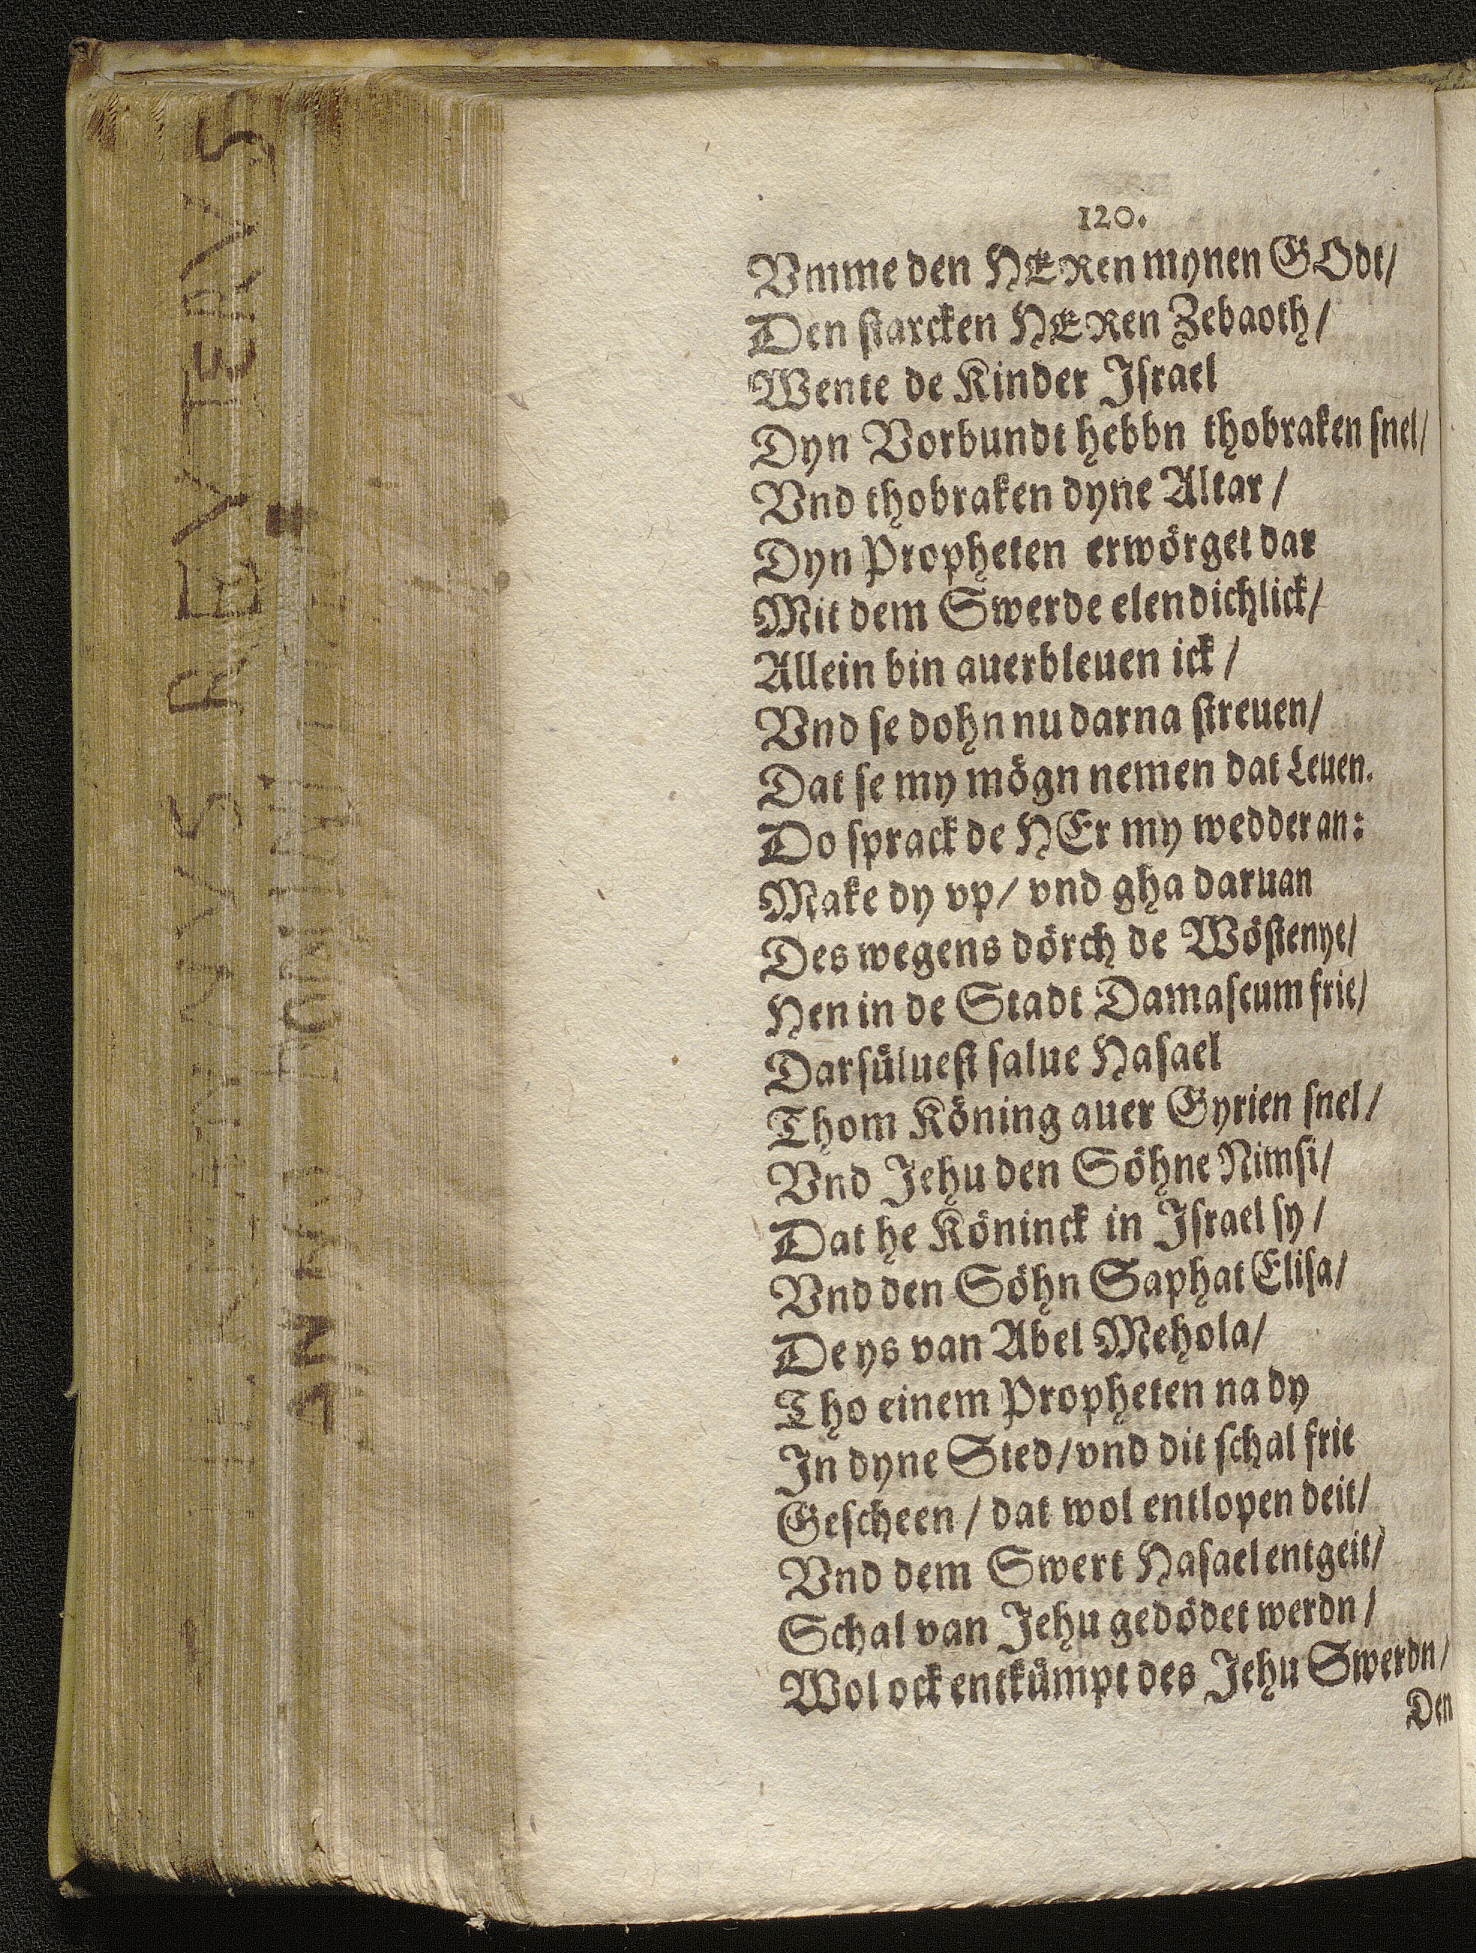 120.
Vmme den HERen mynen GOdt/
Den starcken HERen Zebaoth/
Wente de Kinder Israel
Dyn Vorbundt hebbn thobraken snel/
Vnd thobraken dyne Altar/
Dyn Propheten erwörget dar
Mit dem Swerde elendichlick/
Allein bin auerbleuen ick/
Vnd se dohn nu darna streuen/
Dat se my mögn nemen dat Leuen.
Do sprack de HEr my wedder an:
Make dy vp/ vnd gha daruan
Des wegens dörch de Wöstenye/
Hen in de Stadt Damascum frie/
Darsüluest salue Hasael
Thom Köning auer Syrien snel/
Vnd Jehu den Söhne Nimsi/
Dat he Köninck in Israel sy/
Vnd den Söhn Saphat Elisa/
De ys van Abel Mehola/
Tho einem Propheten na dy
In dyne Sted/ vnd dit schal frie
Gescheen/ dat wol entlopen deit/
Vnd dem Swert Hasael entgeit/
Schal van Jehu gedödet werdn/
Wol ock entkümpt des Jehu Swerdn/
Den
REVTERVS
ANNO DOMINI